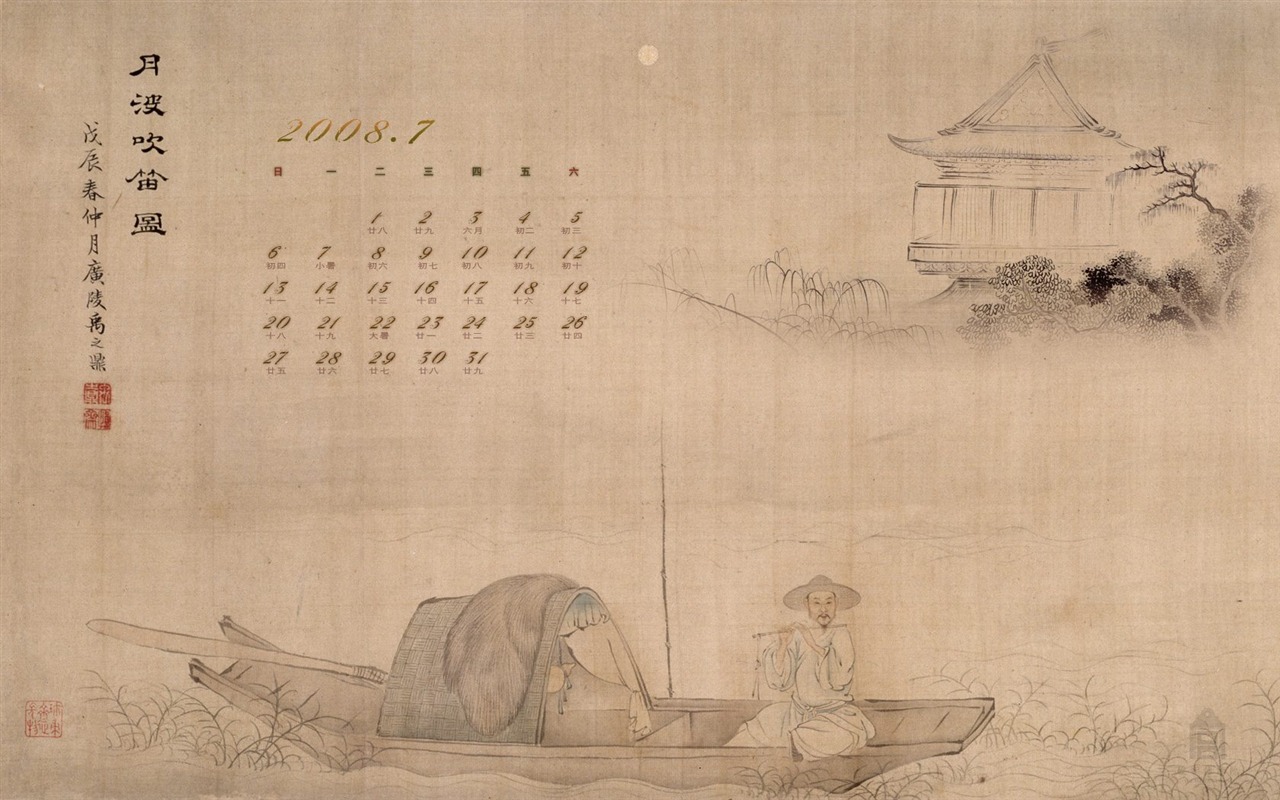 月波吹笛圖
戊辰春仲月廣陵禹之鼎
2008.7
日 一 二 三 四 五 六
1 2 3 4 5
廿八 廿九 六月 初二 初三
6 7 8 9 10 11 12
初四 小暑 初六 初七 初八 初九 初十
13 14 15 16 17 18 19
十一 十二 十三 十四 十五 十六 十七
20 21 22 23 24 25 26
十八 十九 大暑 廿一 廿二 廿三 廿四
27 28 29 30 31
廿五 廿六 廿七 廿八 廿九